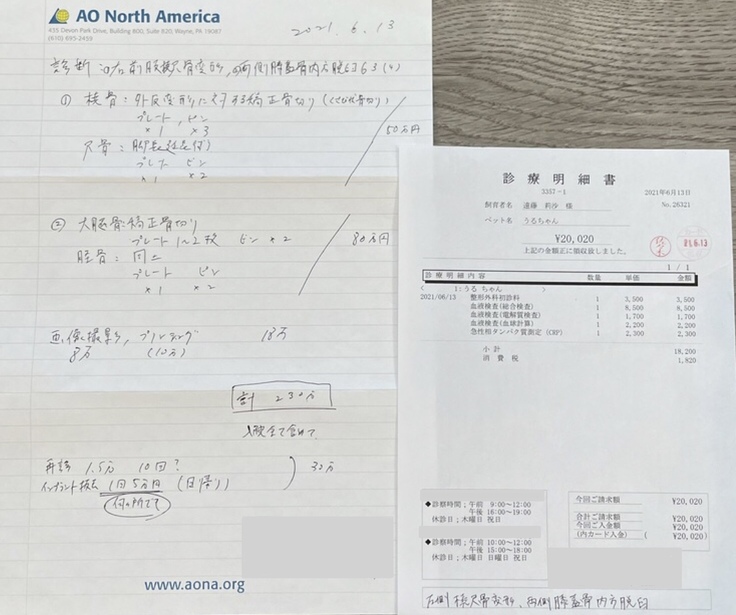 AO North America
435 Devon Park Drive, Building 800, Suite 820, Wayne, PA 19087
(610) 695-2459
2021. 6. 13
診断
両側膝蓋骨内方脱臼
① 橈骨:外反変形に対する矯正骨切り
プレート, ピン
×1 ×3
尺骨:
ピン
×1 ×2
50万円
② 大腿骨矯正骨切り
プレート 1~2枚 ピン ×2
脛骨:同上
プレート ピン
×1 ×2
80万円
画像撮影, プランニング 18万
8万 (10万)
計 230万
入院全て含めて
再診 1.5万 10回?
インプラント抜去 1回5万円 (日帰り)
何ヶ所でも
30万
www.aona.org
診療明細書
3357-1 2021年6月13日
飼育者名 遠藤 莉沙 様 No.26321
ペット名 うるちゃん
¥20,020
上記の金額正に領収致しました。
21.6.13
1 / 1
診療明細内容 数量 単価 金額
< 1:うる ちゃん >
2021/06/13 整形外科初診料 1 3,500 3,500
血液検査(総合検査) 1 8,500 8,500
血液検査(電解質検査) 1 1,700 1,700
血液検査(血球計算) 1 2,200 2,200
急性相タンパク質測定 (CRP) 1 2,300 2,300
小 計 18,200
消 費 税 1,820
◆診察時間;午前 9:00~12:00
午後 16:00~19:00
休診日;木曜日 祝日
◆診察時間;午前 10:00~12:00
午後 15:00~18:00
休診日;木曜日 日曜日 祝日
今回ご請求額 ¥20,020
合計ご請求額 ¥20,020
今回ご入金額 ¥20,020
(内カード入金) ( ¥20,020)
右側橈尺骨変形、両側膝蓋骨内方脱臼